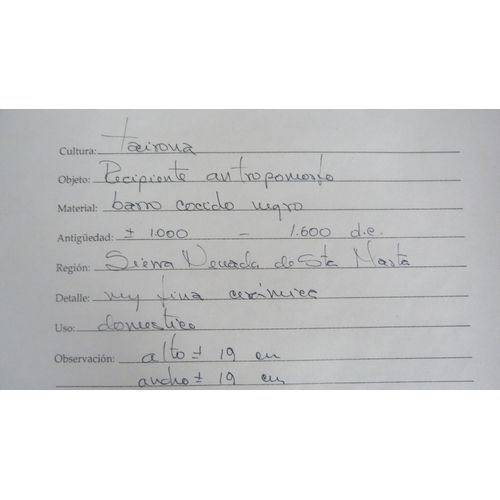 Cultura: tairona
Objeto: Recipiente antropomorfo
Material: barro cocido negro
Antigüedad: ± 1000 - 1.600 d.c.
Región: Sierra Nevada de Sta Marta
Detalle: muy fina cerámica
Uso: domestico
Observación: alto ± 19 cm
ancho ± 19 cm